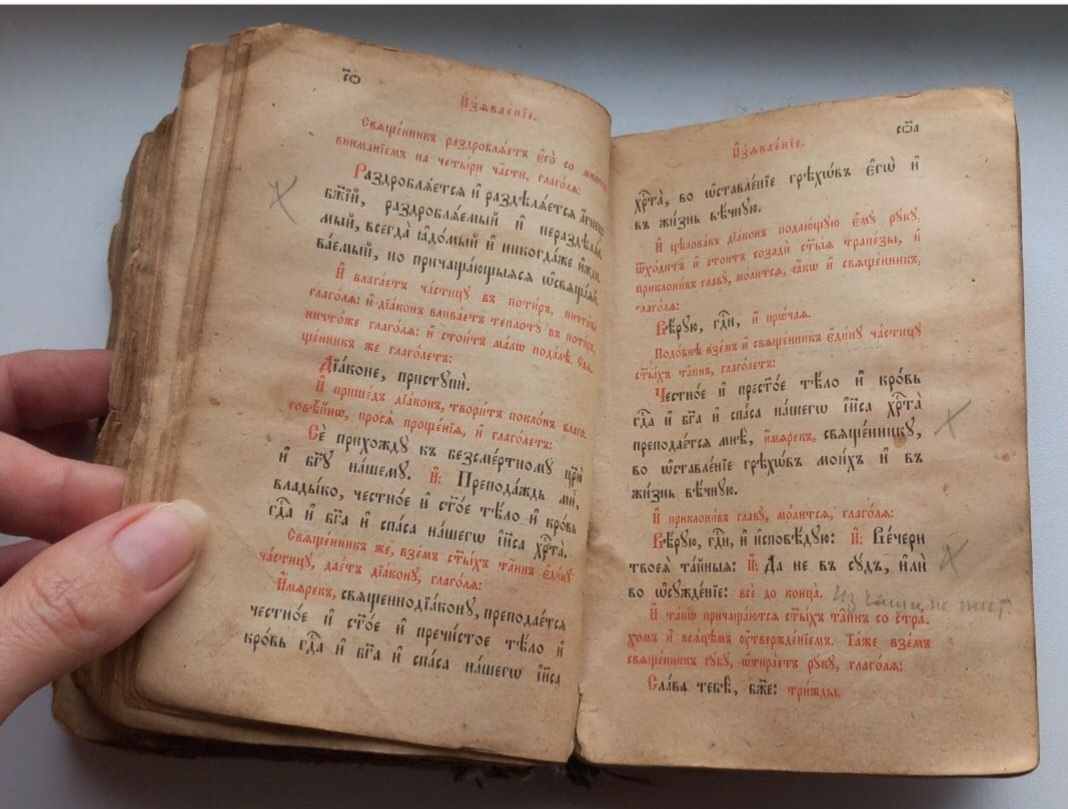 со҃
И҆з̾ѧвле́нїе.
Свѧще́нникъ раздроблѧ́етъ є҆го̀ со
внима́нїемъ на четы́ри ча̑сти, глаго́лѧ:
Раздроблѧ́етсѧ и҆ раздѣлѧ́етсѧ а҆́гнецъ
бж҃їй, раздроблѧ́емый и҆ нераздѣлѧ́е
мый, всегда̀ ꙗ҆до́мый и҆ никогда́же и҆жди
ва́емый, но причаща́ющыѧсѧ ѡ҆свѧща́ѧй.
И҆ влага́етъ части́цꙋ въ поти́ръ, ничто́же
глаго́лѧ: и҆ дїа́конъ влива́етъ теплотꙋ̀ въ поти́ръ,
ничто́же глаго́лѧ: и҆ стои́тъ ма́лѡ пода́лѣ. Свѧ
ще́нникъ же глаго́летъ:
Дїа́коне, пристꙋпѝ.
И҆ прише́дъ дїа́конъ, твори́тъ покло́нъ благо
говѣ́йнѡ, просѧ̀ проще́нїѧ, и҆ глаго́летъ:
Сѐ прихождꙋ̀ къ безсме́ртномꙋ цр҃ю̀
и҆ бг҃ꙋ на́шемꙋ. И҆: Препода́ждь мѝ,
влады́ко, честно́е и҆ ст҃о́е тѣ́ло и҆ кро́вь
гдⷭ҇а и҆ бг҃а и҆ сп҃са на́шегѡ і҆и҃са хрⷭ҇та̀.
Свѧще́нникъ же, взе́мъ ст҃ы́хъ та̑инъ є҆ди́нꙋ
части́цꙋ, дае́тъ дїа́конꙋ, глаго́лѧ:
И҆́мѧрекъ, свѧщеннодїа́конꙋ, преподае́тсѧ
честно́е и҆ ст҃о́е и҆ пречⷭ҇тое тѣ́ло и҆
кро́вь гдⷭ҇а и҆ бг҃а и҆ сп҃са на́шегѡ і҆и҃са
соа҃
И҆з̾ѧвле́нїе.
хрⷭ҇та̀, во ѡ҆ставле́нїе грѣхѡ́въ є҆гѡ̀ и҆
въ жи́знь вѣ́чнꙋю.
И҆ цѣлова́въ дїа́конъ подаю́щꙋю є҆мꙋ̀ рꙋ́кꙋ,
ѿхо́дитъ и҆ стои́тъ созадѝ ст҃ы́ѧ трапе́зы, и҆
приклони́въ главꙋ̀, мо́литсѧ, ꙗ҆́кѡ и҆ свѧще́нникъ,
глаго́лѧ:
Вѣ́рꙋю, гдⷭ҇и, и҆ про́чаѧ.
Подо́бнѣ взе́мъ и҆ свѧще́нникъ є҆ди́нꙋ части́цꙋ
ст҃ы́хъ та̑инъ, глаго́летъ:
Честно́е и҆ прест҃о́е тѣ́ло и҆ кро́вь
гдⷭ҇а и҆ бг҃а и҆ сп҃са на́шегѡ і҆и҃са хрⷭ҇та̀
преподае́тсѧ мнѣ̀, и҆́мѧрекъ, свѧще́нникꙋ,
во ѡ҆ставле́нїе грѣхѡ́въ мои́хъ и҆ въ
жи́знь вѣ́чнꙋю.
И҆ приклони́въ главꙋ̀, мо́литсѧ, глаго́лѧ:
Вѣ́рꙋю, гдⷭ҇и, и҆ и҆сповѣ́дꙋю: И҆: Ве́чери
твоеѧ̀ та́йныѧ: И҆: Да не въ сꙋ́дъ, и҆лѝ
во ѡ҆сꙋжде́нїе: всѐ до конца̀. Из чаши
И҆ та́кѡ причаща́ютсѧ ст҃ы́хъ та̑инъ со стра́
хомъ и҆ всѧ́цѣмъ ᲂу҆твержде́нїемъ. Та́же взе́мъ
свѧще́нникъ гꙋ́бꙋ, ѡ҆тира́етъ рꙋ́кꙋ, глаго́лѧ:
Сла́ва тебѣ̀, бж҃е: три́жды.